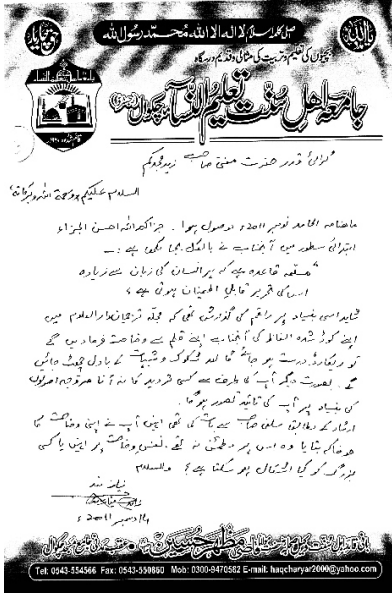 اصلی کلمہ اسلام لا الہ الا اللہ محمد رسول اللہ
یا اللہ مدد
حق چار یار
بچیوں کی تعلیم و تربیت کی مثالی و قدیم درسگاہ
جامعہ اہل سنت تعلیم النساء چکوال
گرامی قدر حضرت مفتی صاحب زید مجدکم
السلام علیکم ورحمۃ اللہ وبرکاتہ
ماہنامہ الحامد نومبر 2011ء وصول ہوا۔ جزاکم اللہ احسن الجزاء
ابتدائی سطور میں آنجناب نے بالکل بجا لکھی ہے:۔
"مسلمہ قاعدہ ہے کہ ہر انسان کی زبان سے زیادہ
اس کی تحریر قابلِ اطمینان ہوتی ہے"
شاید اسی بنیاد پر راقم کی گذارش تھی کہ مجلہ ترجمان دارالعلوم میں
اپنے کوڈ شدہ الفاظ کی آنجناب اپنے قلم سے وضاحت فرما دیں گے
تو ریکارڈ درست ہو جائے گا اور شکوک و شبہات کے بادل چھٹ جائیں
گے۔ بصورت دیگر آپ کی طرف سے کسی تردید کا نہ آنا مروجہ اصولوں
کی بنیاد پر آپ کی تائید تصور ہو گا۔
ارشاد کے مطابق سلفی صاحب سے بات کی تھی انہیں آپ نے اپنی وضاحت کا
جو خاکہ بتایا وہ اس پر مطمئن نہ تھے۔ نفسِ وضاحت پر انہیں یا کسی
بزرگ کو کیا اشکال ہو سکتا ہے؟ والسلام
نیاز مند
14 دسمبر 2011ء
مظہر حسین
Tel: 0543-554566 Fax: 0543-550860 Mob: 0300-9470582 E-mail: haqcharyar2000@yahoo.com